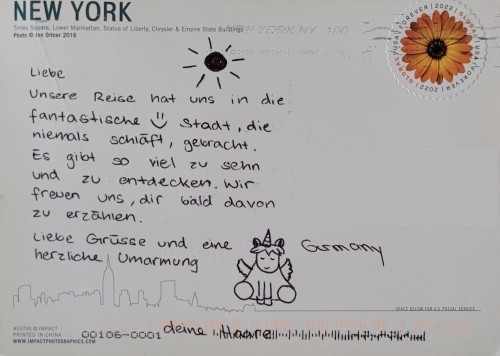 NEW YORK
Times Square, Lower Manhattan, Statue of Liberty, Chrysler & Empire State Building
Photo © Jon Ortner 2016
GLOBAL USA FOREVER 2022
Liebe
Unsere Reise hat uns in die
fantastische Stadt, die
niemals schläft, gebracht.
Es gibt so viel zu sehn
und zu entdecken. Wir
freuen uns, dir bald davon
zu erzählen.
Liebe Grüsse und eine
herzliche Umarmung
Germany
SPACE BELOW FOR U.S. POSTAL SERVICE
©IMPACT
PRINTED IN CHINA
WWW.IMPACTPHOTOGRAPHICS.COM
00106-0001
deine Haare